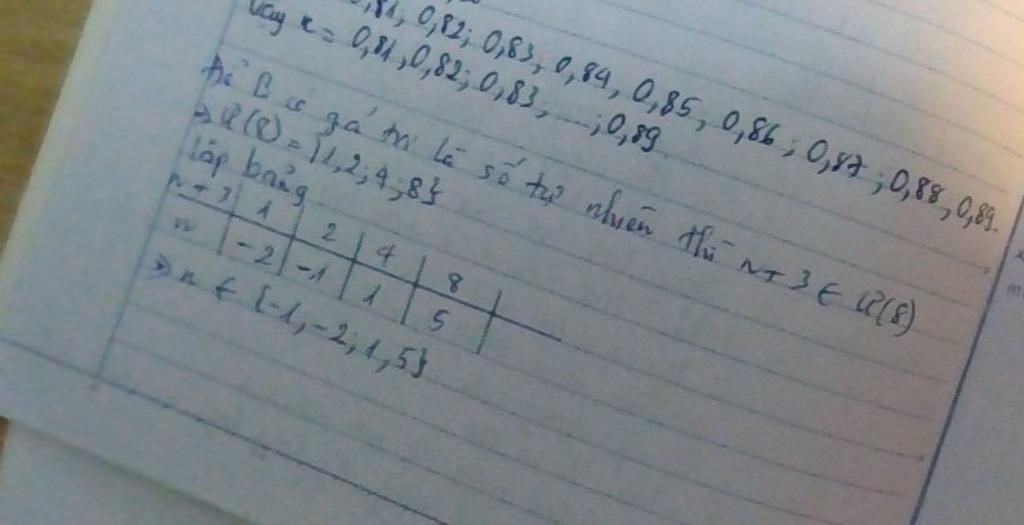 0,81, 0,82; 0,83, 0,84, 0,85, 0,86; 0,87; 0,88, 0,89.
Vậy x = 0,81, 0,82; 0,83, ...; 0,89
Để B có gá trị là số tự nhiên thì n + 3 ∈ Ư(8)
⇒ Ư(8) = {1, 2; 4; 8}
lập bảng
n + 3 | 1 | 2 | 4 | 8
n | -2 | -1 | 1 | 5
⇒ n ∈ {-1, -2; 1, 5}